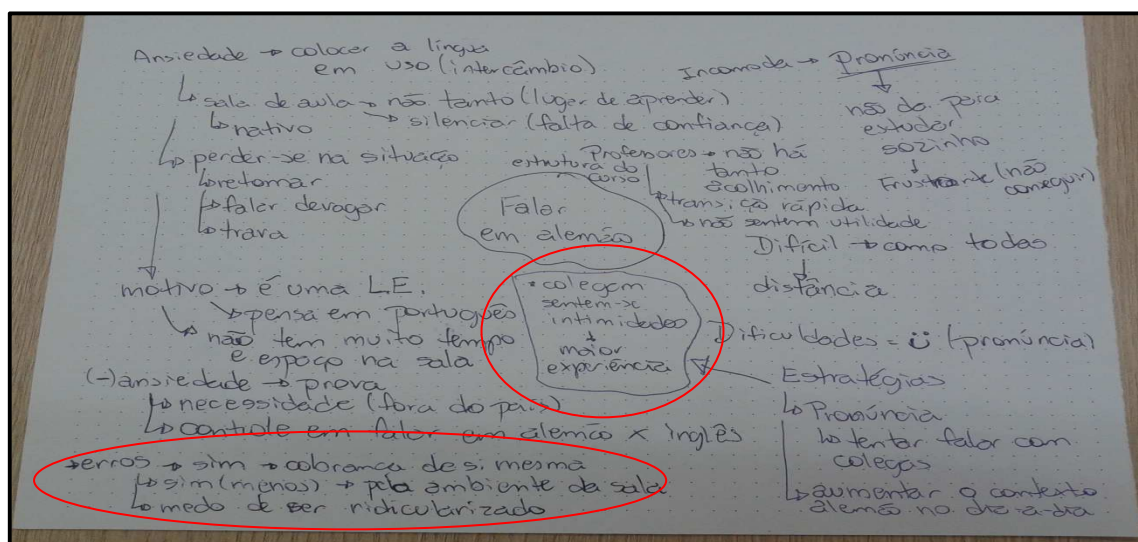 Ansiedade → colocar a língua
em uso (intercâmbio)
↳ sala de aula → não tanto (lugar de aprender)
↳ nativo ↘ silenciar (falta de confiança)
↳ perder-se na situação
↳ retomar
↳ falar devagar
↳ trava
motivo → é uma L.E.
↘ pensa em português
↘ não tem muito tempo
e espaço na sala
(-) ansiedade → prova
↳ necessidade (fora do país)
↳ controle em falar em alemão x inglês
→ erros → sim → cobrança de si mesma
↳ sim (menos) → pelo ambiente da sala
↳ medo de ser ridicularizado
Falar
em alemão
• colegam
sentem-se
intimidados
↓
maior
experiência
Incomoda → Pronúncia
↓
não dá para
estudar
sozinho
↓
(não
conseguir)
Professores → não há
tanto
acolhimento
estrutura do
curso
↳ transição rápida
↳ não sentem utilidade
Difícil → como todas
↓
distância
Dificuldades = ü (pronúncia)
Estratégias
↳ Pronúncia
↳ tentar falar com
colegas
↳ aumentar o contexto
alemão no dia-a-dia